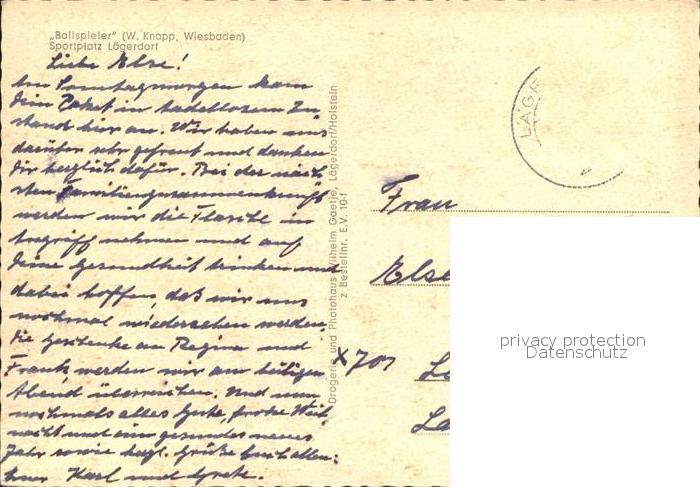 „Ballspieler" (W. Knapp, Wiesbaden)
Sportplatz Lägerdorf
Liebe Else!
Am Sonntagmorgen kam
Dein Paket in tadellosem Zu
stand hier an. Wir haben uns
darüber sehr gefreut und danken
Dir herzlich dafür. Bei der näch
sten Familienzusammenkunft
werden wir die Flasche in
Angriff nehmen und auf
Deine Gesundheit trinken und
dabei hoffen, daß wir uns
nochmal wiedersehen werden.
Die Geschenke an Regina und
Frank werden wir am heiligen
Abend überreichen. Und nun
nochmals alles Gute, frohe Weih
nacht und ein gesundes neues
Jahr sowie Grüße von allen.
Karl und Grete.
Drogerie und Photohaus Wilhelm Gaetje, Lägerdorf/Holstein
z Bestellnr. E.V. 10-f
LÄGE
Frau
Else
X 701
La
privacy protection
Datenschutz